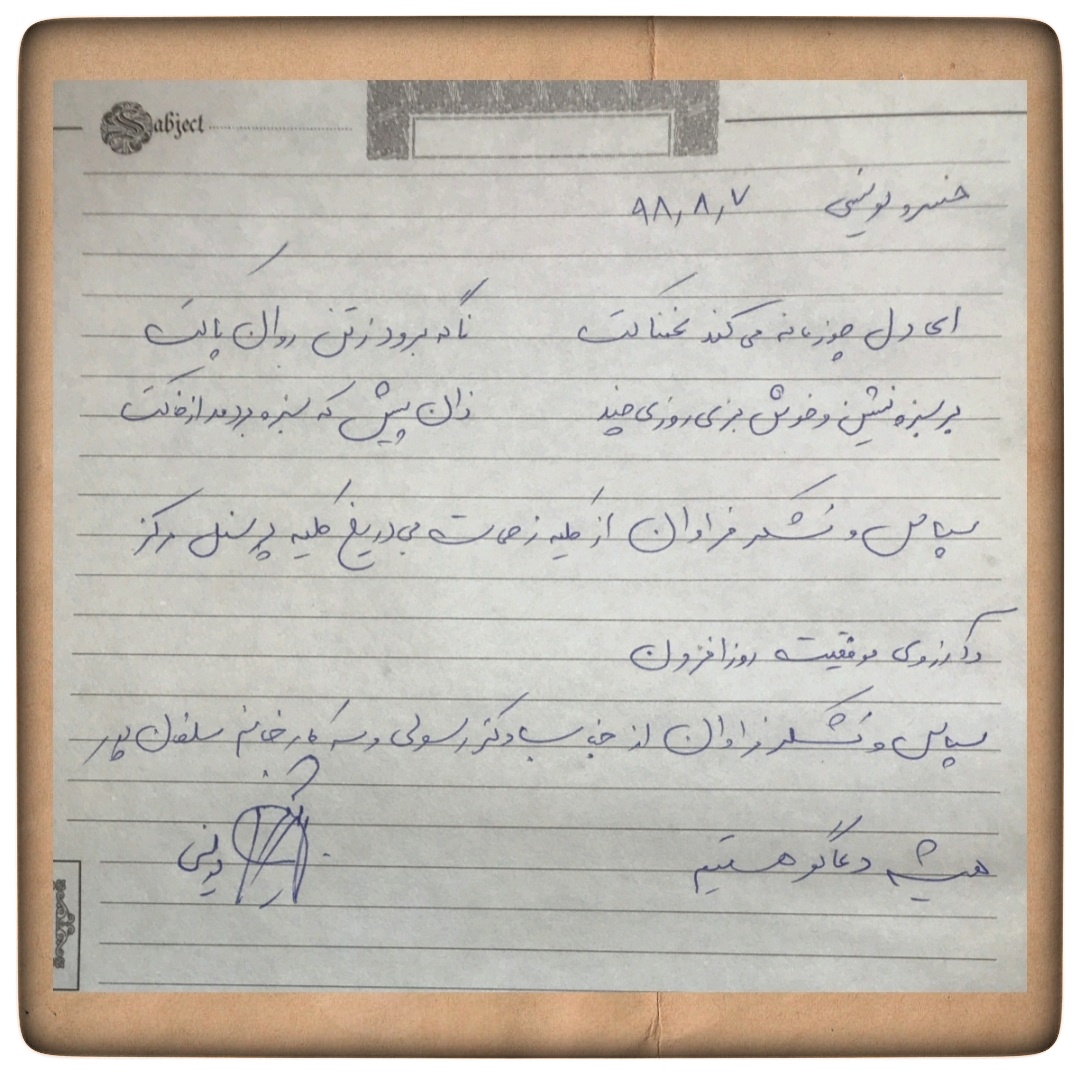 Sabject
خسرو یونسی ۹۸٫۸٫۷
ای دل چو زمانه می کند غمناکت ناگه برود زتن روان پاکت
بر سبزه نشین و خوش بزی روزی چند زان پیش که سبزه بردمد از خاکت
سپاس و تشکر فراوان از کلیه زحمات بی دریغ کلیه پرسنل مرکز
و آرزوی موفقیت روزافزون
سپاس و تشکر فراوان از جناب دکتر رسولی و سرکار خانم
همیشه دعاگو هستیم
یونسی